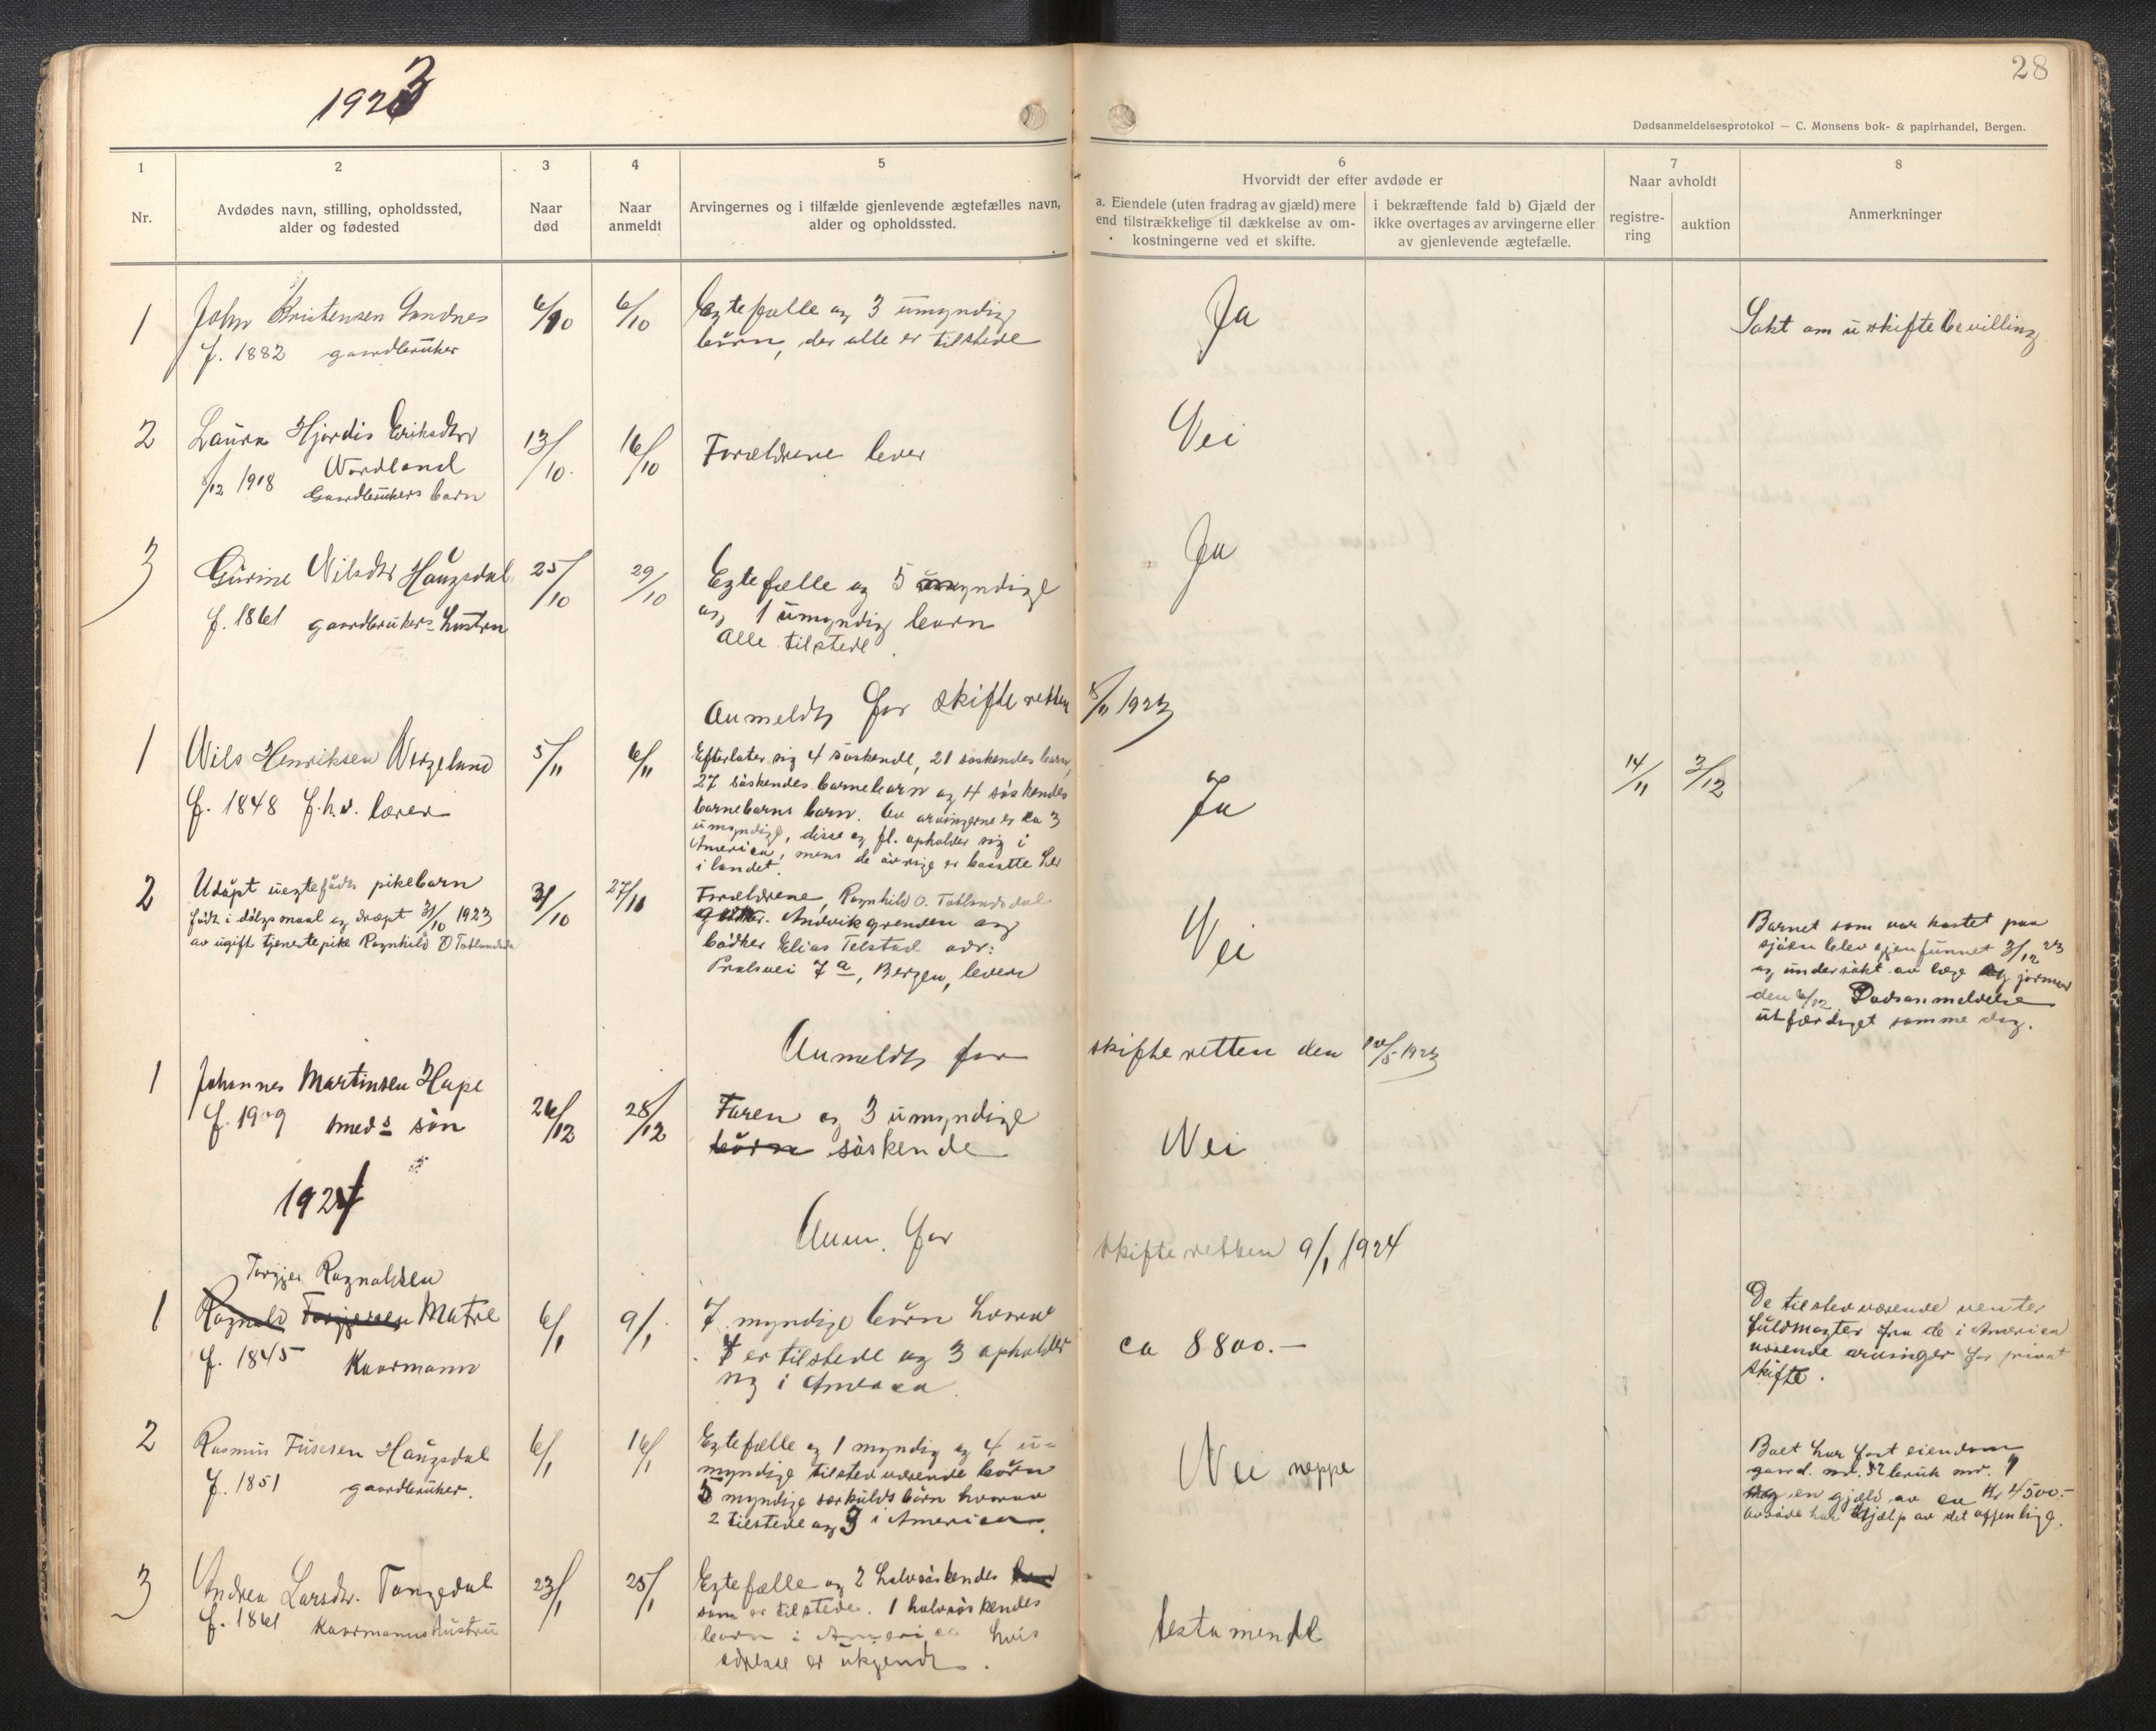 1923
28
Dødsanmeldelsesprotokol — C. Monsens bok- & papirhandel, Bergen.
1
Nr.
2
Avdødes navn, stilling, opholdssted,
alder og fødested
3
Naar
død
4
Naar
anmeldt
5
Arvingernes og i tilfælde gjenlevende ægtefælles navn,
alder og opholdssted.
6
Hvorvidt der efter avdøde er
a. Eiendele (uten fradrag av gjæld) mere
end tilstrækkelige til dækkelse av om-
kostningerne ved et skifte.
i bekræftende fald b) Gjæld der
ikke overtages av arvingerne eller
av gjenlevende ægtefælle.
7
Naar avholdt
registre-
ring
auktion
8
Anmerkninger
1
John Kristensen Sandnes
f. 1882 gaardbruker
6/10
6/10
Egtefælle og 3 umyndig
børn, der alle er tilstede
Ja
Søkt om uskiftebevilling
2
Laura Hjørdis Eriksdtr
Nordland
/12 1918 Gaardbrukers barn
13/10.
16/10
Forældrene lever
Nei
3
Gurine Nilsdtr Haugsdal
f. 1861 gaardbrukers hustru
25/10
29/10
Egtefælle og 5 myndige
og 1 umyndig barn
Alle tilstede.
Ja
Anmeldt for skifteretten 8/11 1923
1
Nils Henriksen Nergelund
f. 1848 f.h.v. lærer
5/11
6/11
Efterlater sig 4 søskende, 21 søskendes barn,
27 søskendes barnebarn og 4 søskendes
barnebarns barn. Av arvingerne er ca 3
umyndige, disse og fl. opholder sig i
America, mens de øvrige er bosatte her
i landet.
Ja
14/11
3/12
2
Udøpt uegtefødt pikebarn
født i dølgsmaal og dræpt 31/10 1923
av ugift tjenestepike Ragnhild O Totlandsdal
31/10
27/11
Forældrene, Ragnhild O. Totlandsdal
Andvikgrenden og
bødker Elias Telstad adr:
7 a, Bergen, lever
Nei
Barnet som var kastet paa
sjøen blev gjenfunnet 3/12 23
og undersøkt av læge og jormor
den 6/12 Dødsanmeldelse
utfærdiget samme dag.
Anmeldt for skifteretten den 1923
1
Johannes Martinsen Hope
f. 1909 smeds søn
26/12
28/12
Faren og 3 umyndige
børn søskende
Nei
1924
Anm. for skifteretten 9/1 1924
1
Torgjer Ragnaldsen
Ragnald Torgjersen Matre
f. 1845 Kaarmann
6/1
9/1
7 myndige børn hvorav
4 er tilstede og 3 opholder
sig i America.
ca 8800.—
De tilstedværende venter
fuldmagter fra de i America
værende arvinger for privat
skifte.
2
Rasmus Fusesen Haugsdal
f. 1851 gaardbruker.
6/1
16/1
Egtefælle og 1 myndig og 4 u=
myndige tilstedværende børn
5 myndige særkulds børn hvorav
2 tilstede og 3 i America.
Nei neppe
Boet har fast eiendom
gaard. nr. 32 bruk nr. 9
en gjæld av ca Kr 4500.-
Avdøde har hjælp av det offentlige.
3
Andrea Larsdtr. Tangedal
f. 1861 Kaarmanns hustru
23/1
25/1
Egtefælle og 2 halvsøskendes barn
som er tilstede. 1 halvsøskendes
barn i America hvis
adresse er ukjendt.
testamente